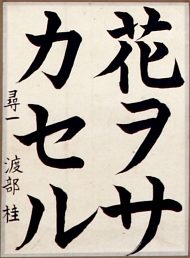 花ヲサ
カセル
尋一 渡部桂